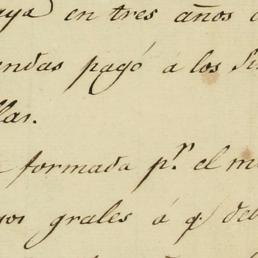 aya en tres años
endas pagó á los
llas.
formada p.r el
grales á q.e